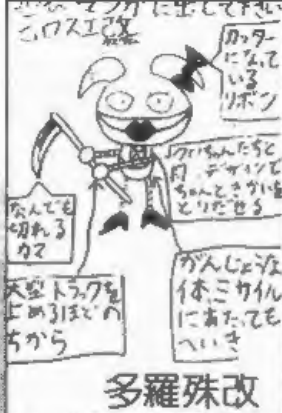 に出して下さい
ピロスエ改
カッター
になって
いる
リボン
ちゃんたちと
同 デザインで
ちゃんときかいを
とりだせる
なんでも
切れる
カマ
大型トラックを
止めるほどの
ちから
がんじょうな
体ミサイル
にあたっても
へいき
多羅殊改